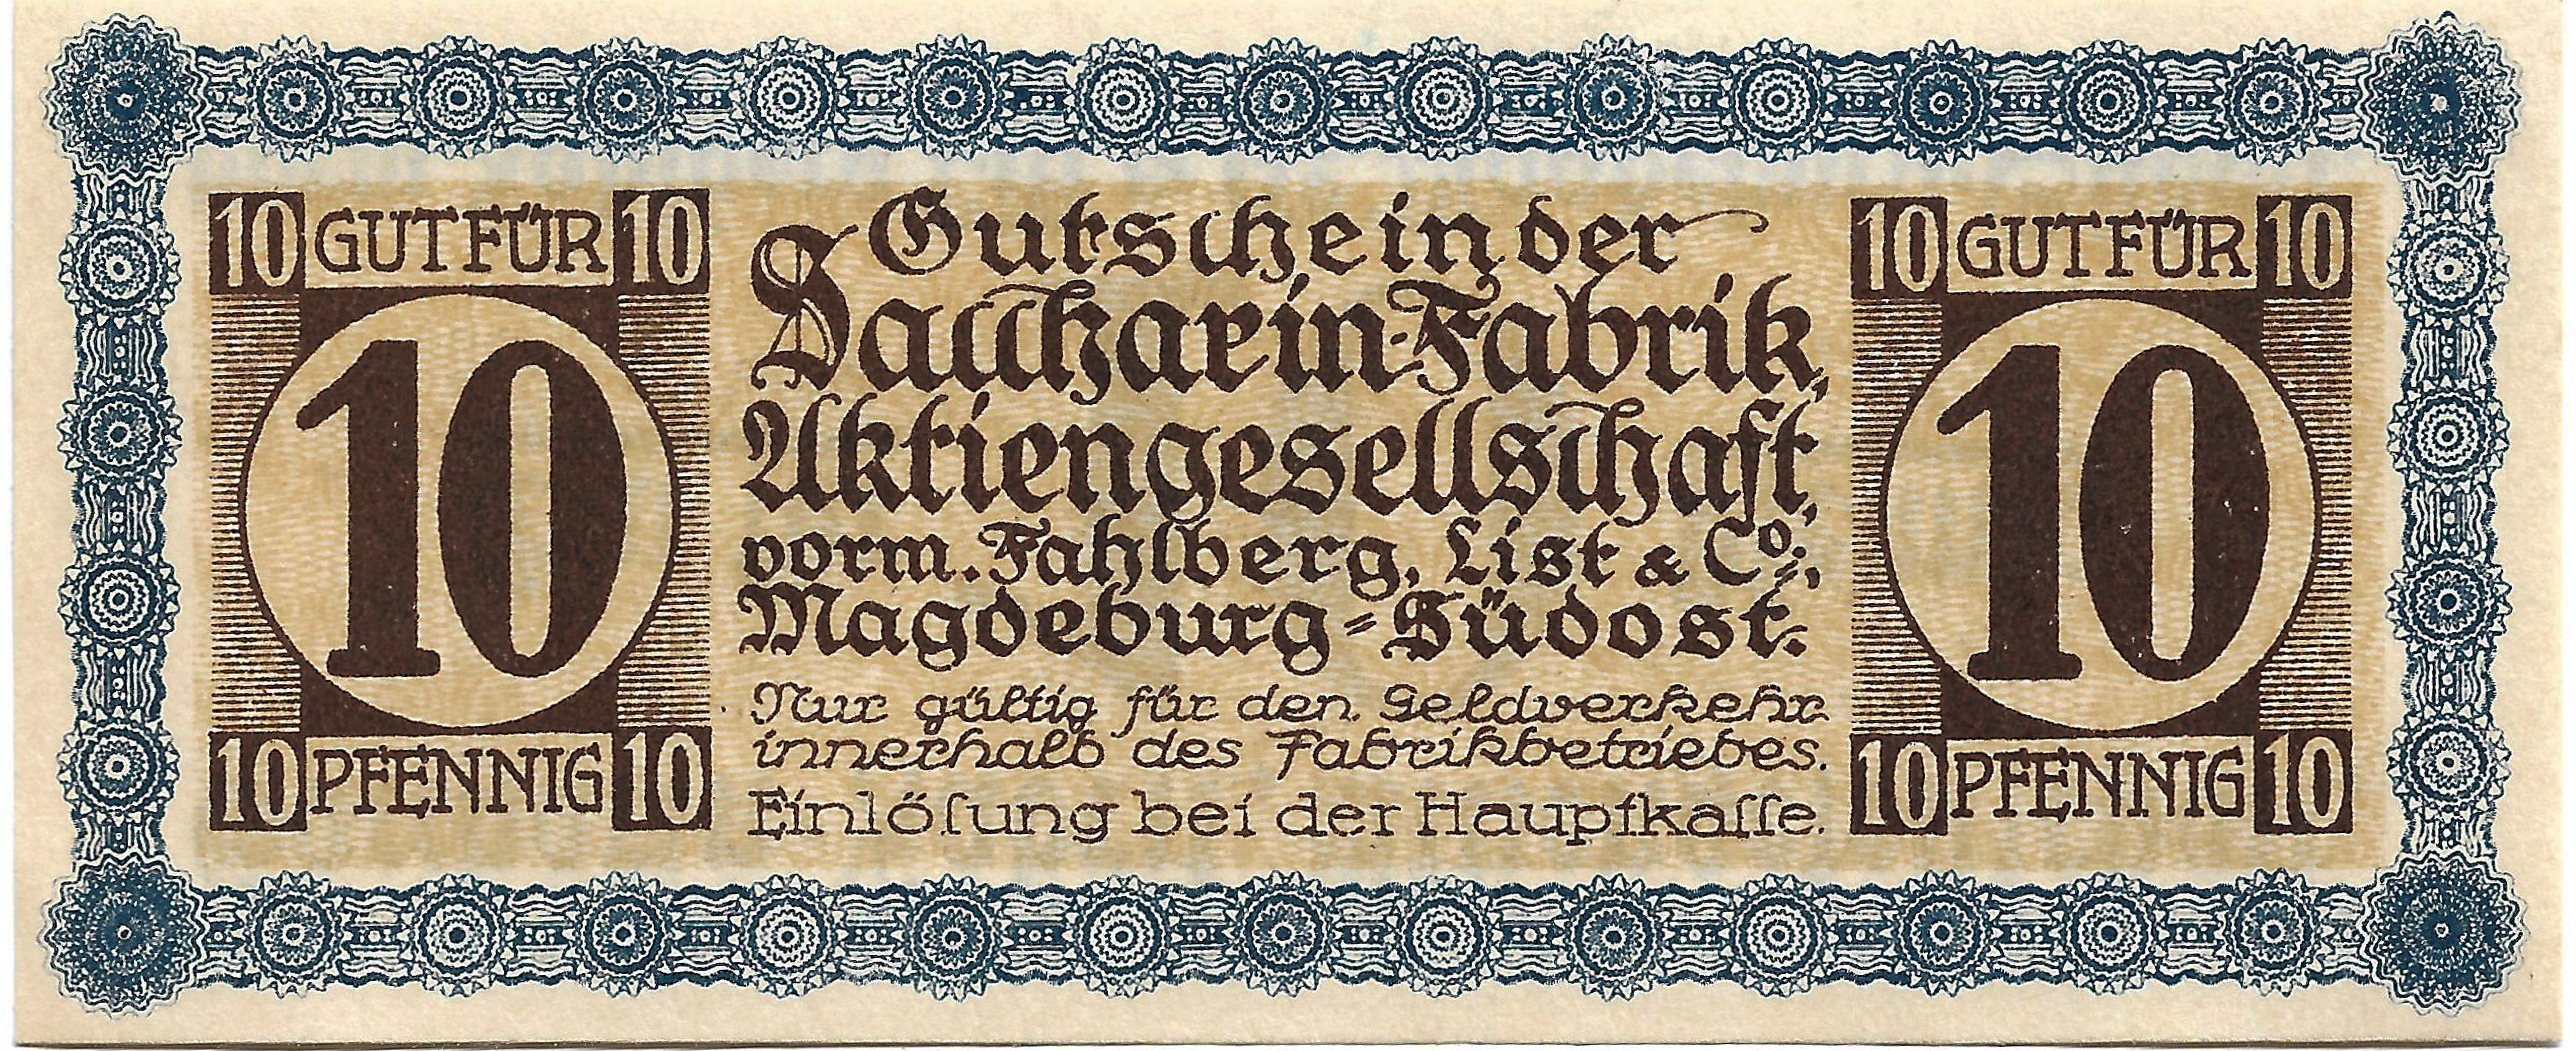 10 GUT FÜR 10
10
10 PFENNIG 10
Gutschein der
Saccharin-Fabrik,
Aktiengesellschaft,
vorm. Fahlberg, List & Co.,
Magdeburg-Südost.
Nur gültig für den Geldverkehr
innerhalb des Fabrikbetriebes.
Einlöſung bei der Hauptkaſſe.
10 GUT FÜR 10
10
10 PFENNIG 10